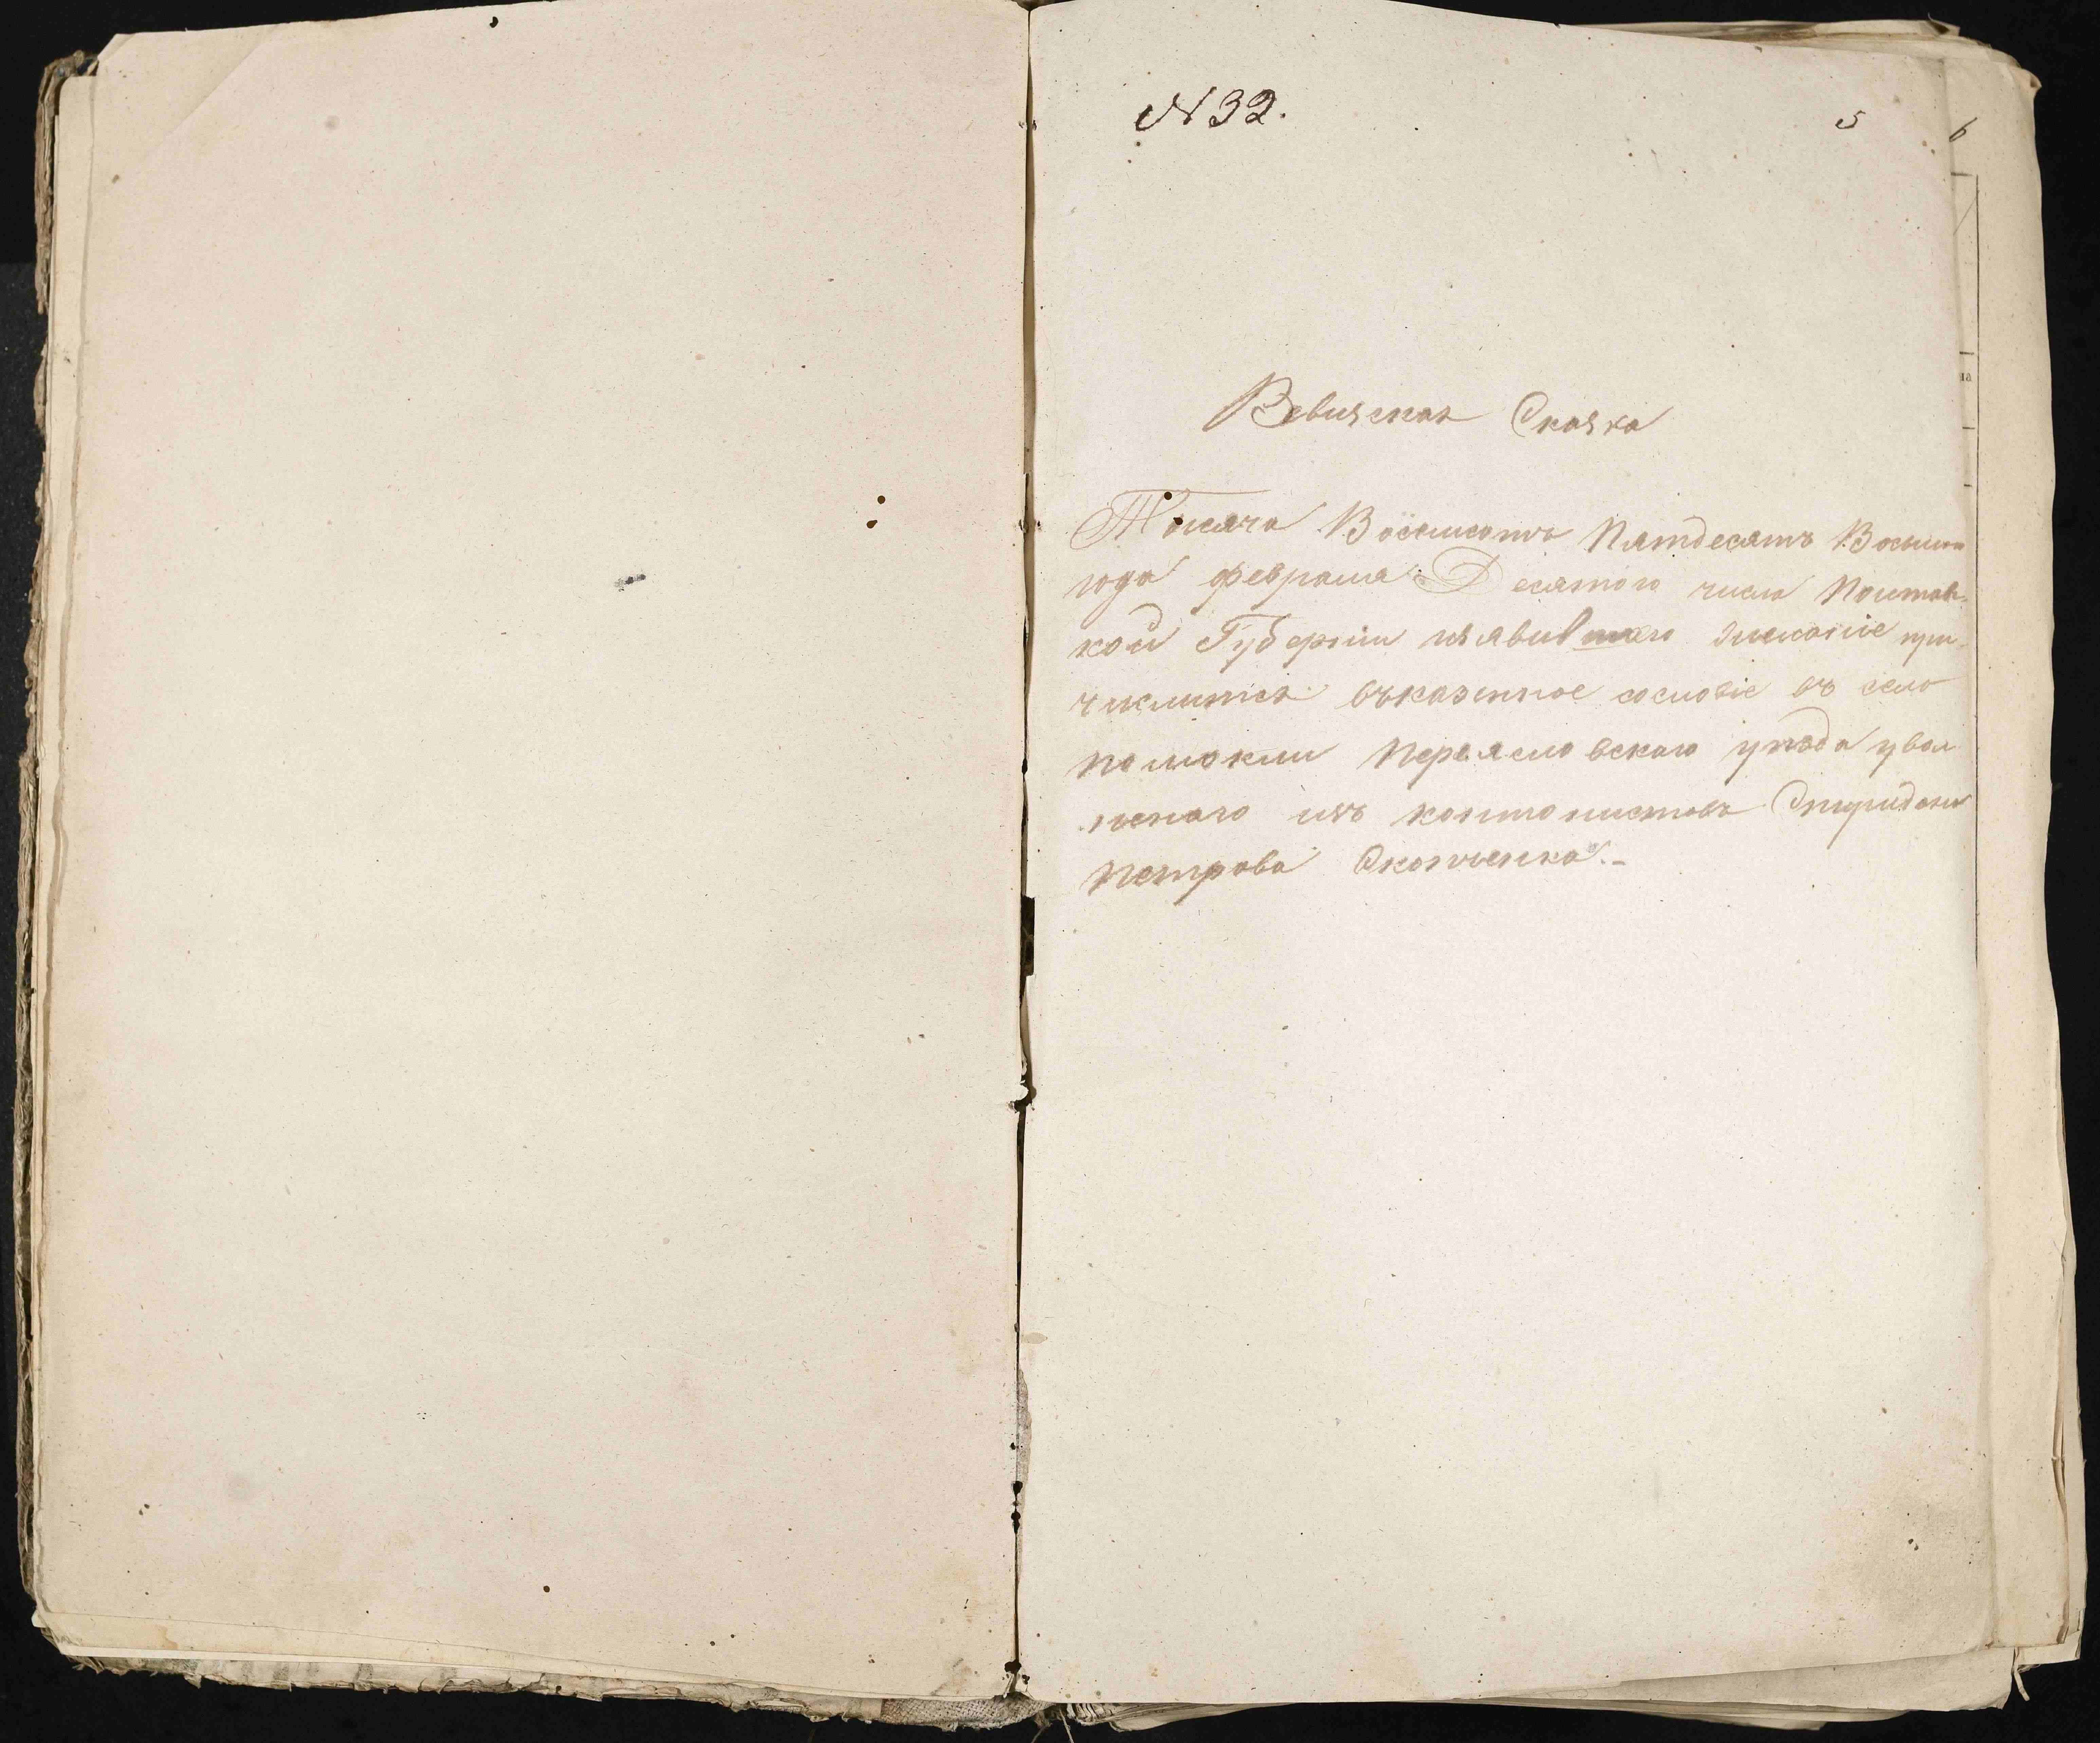 N 32.
5
6
Ревизская Сказка
Тысяча Восемсотъ Пятдесятъ Восьмаго
года февраля Десятого числа Полтавс-
кой Губерніи изявившаго желаніе при-
числится въказенное сословіе въ село
помокли Переяславскаго уѣзда увол
неного изъ контонистовъ Спиридона
Петрова